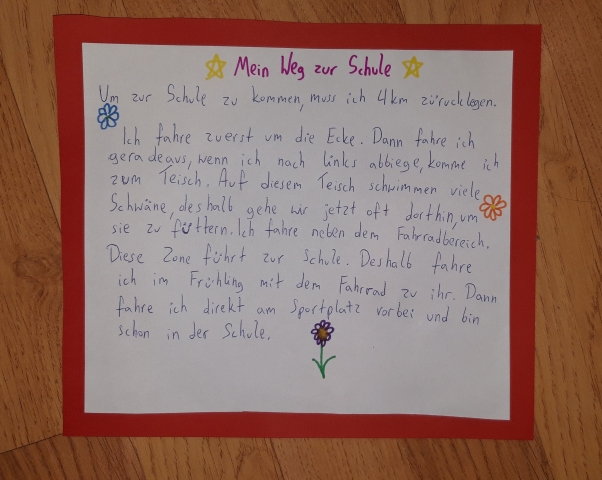 Mein Weg zur Schule
Um zur Schule zu kommen, muss ich 4km zürucklegen.
Ich fahre zuerst um die Ecke. Dann fahre ich
geradeaus, wenn ich nach links abbiege, komme ich
zum Teisch. Auf diesem Teisch schwimmen viele
Schwäne, deshalb gehe wir jetzt oft dorthin, um
sie zu füttern. Ich fahre neben dem Fahrradbereich.
Diese Zone führt zur Schule. Deshalb fahre
ich im Frühling mit dem Fahrrad zu ihr. Dann
fahre ich direkt am Sportplatz vorbei und bin
schon in der Schule.